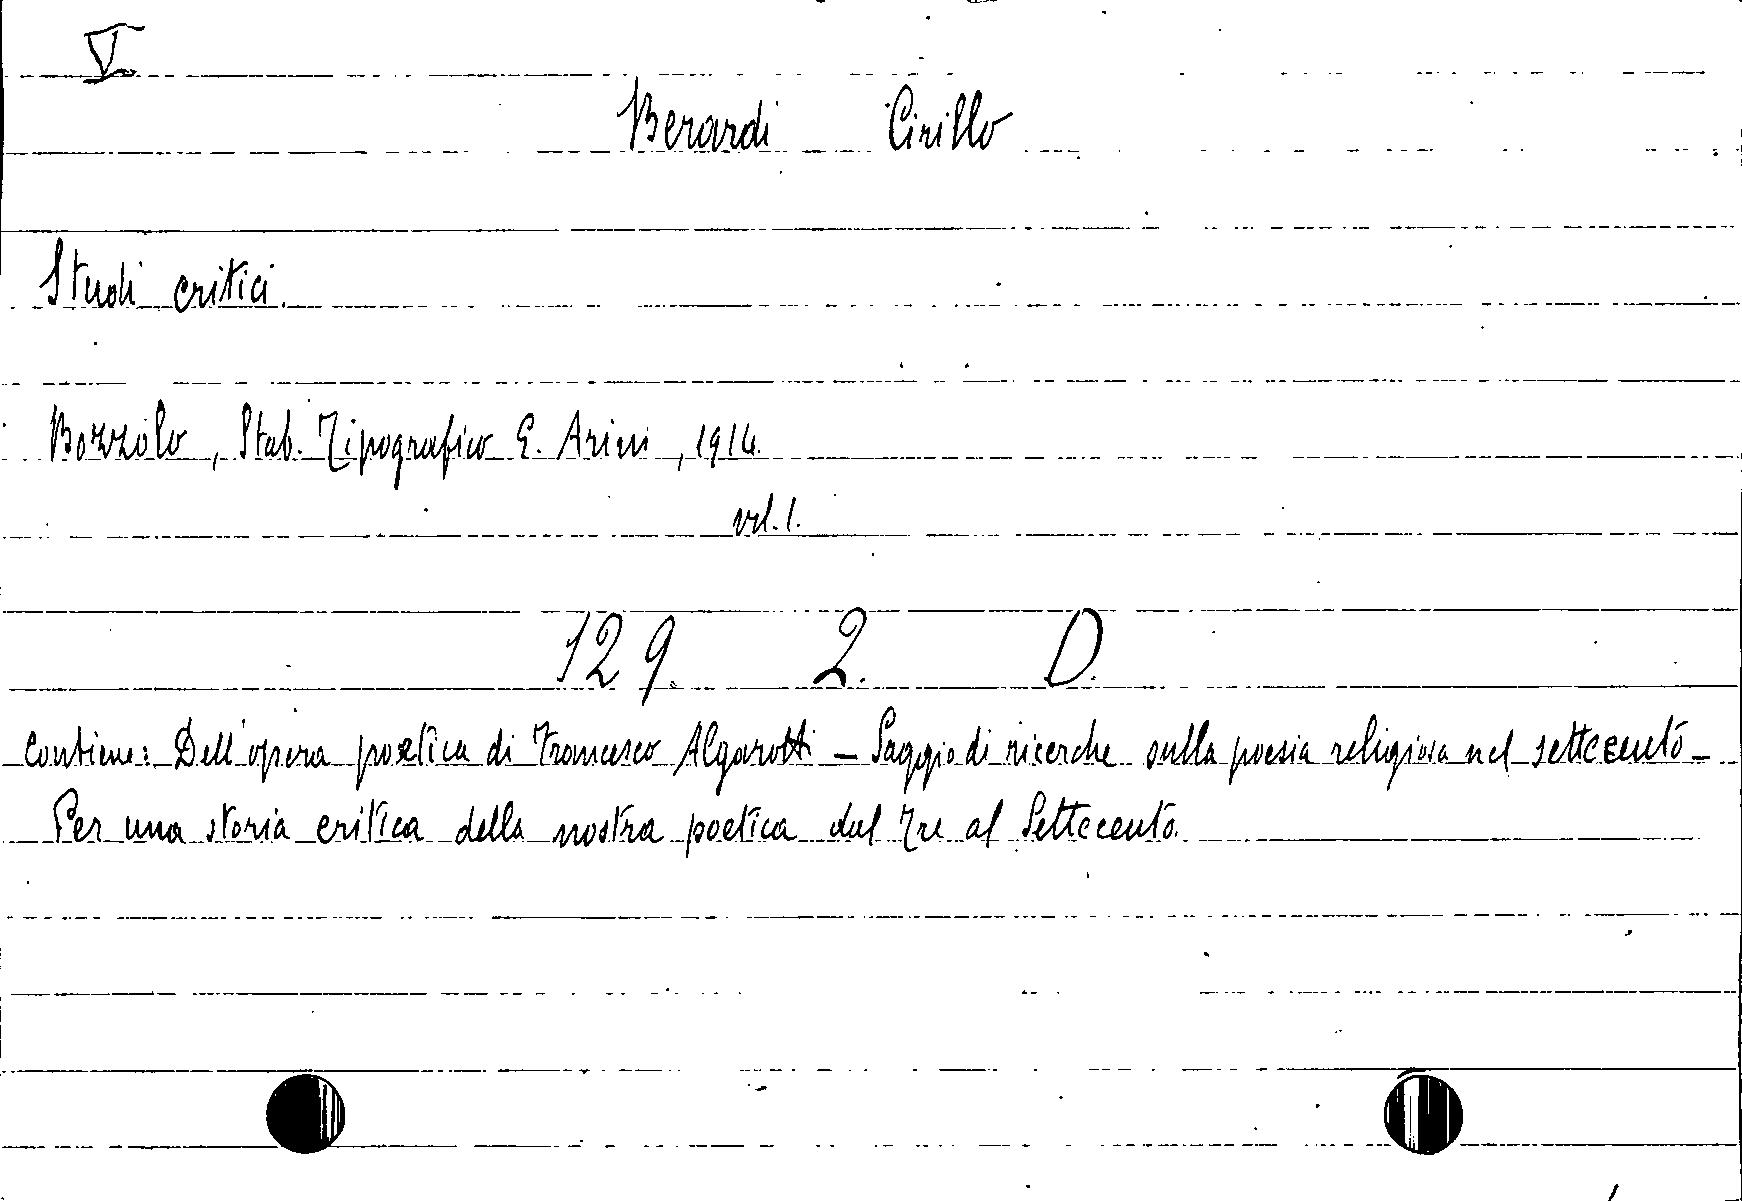 V
Berardi Cirillo
Studi critici.
Bozzolo, Stab. Tipografico E. Arini, 1914.
vol. 1.
129. 2. D.
Contiene: Dell'opera poetica di Francesco Algarotti – Saggio di ricerche sulla poesia religiosa nel settecento –
Per una storia critica della nostra poetica dal Tre al Settecento.